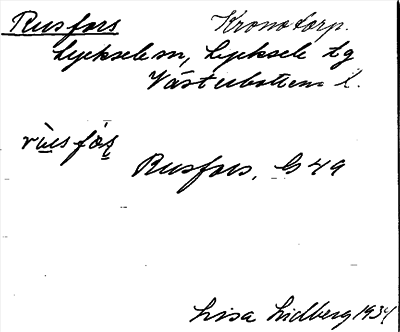 Rusfors Kronotorp.
Lycksele sn, Lycksele tg
Västerbottens l.
Rusfors, G 49
Lisa Lidberg 1934